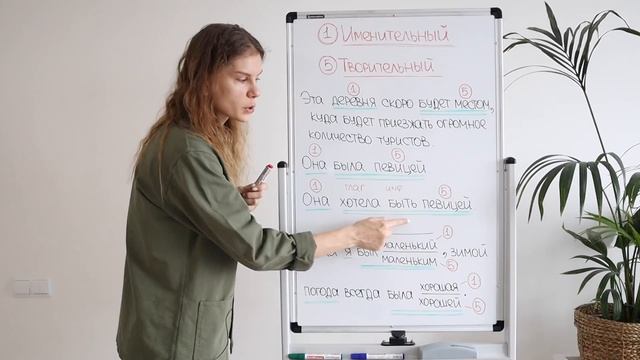 ① Именительный
⑤ Творительный
① ⑤
Эта деревня скоро будет местом,
куда будет приезжать огромное
количество туристов.
① ⑤
Она была певицей
① глаг инф ⑤
Она хотела быть певицей
маленький ①
я был , зимой
маленьким ⑤
хорошая ①
погода всегда была .
хорошей ⑤